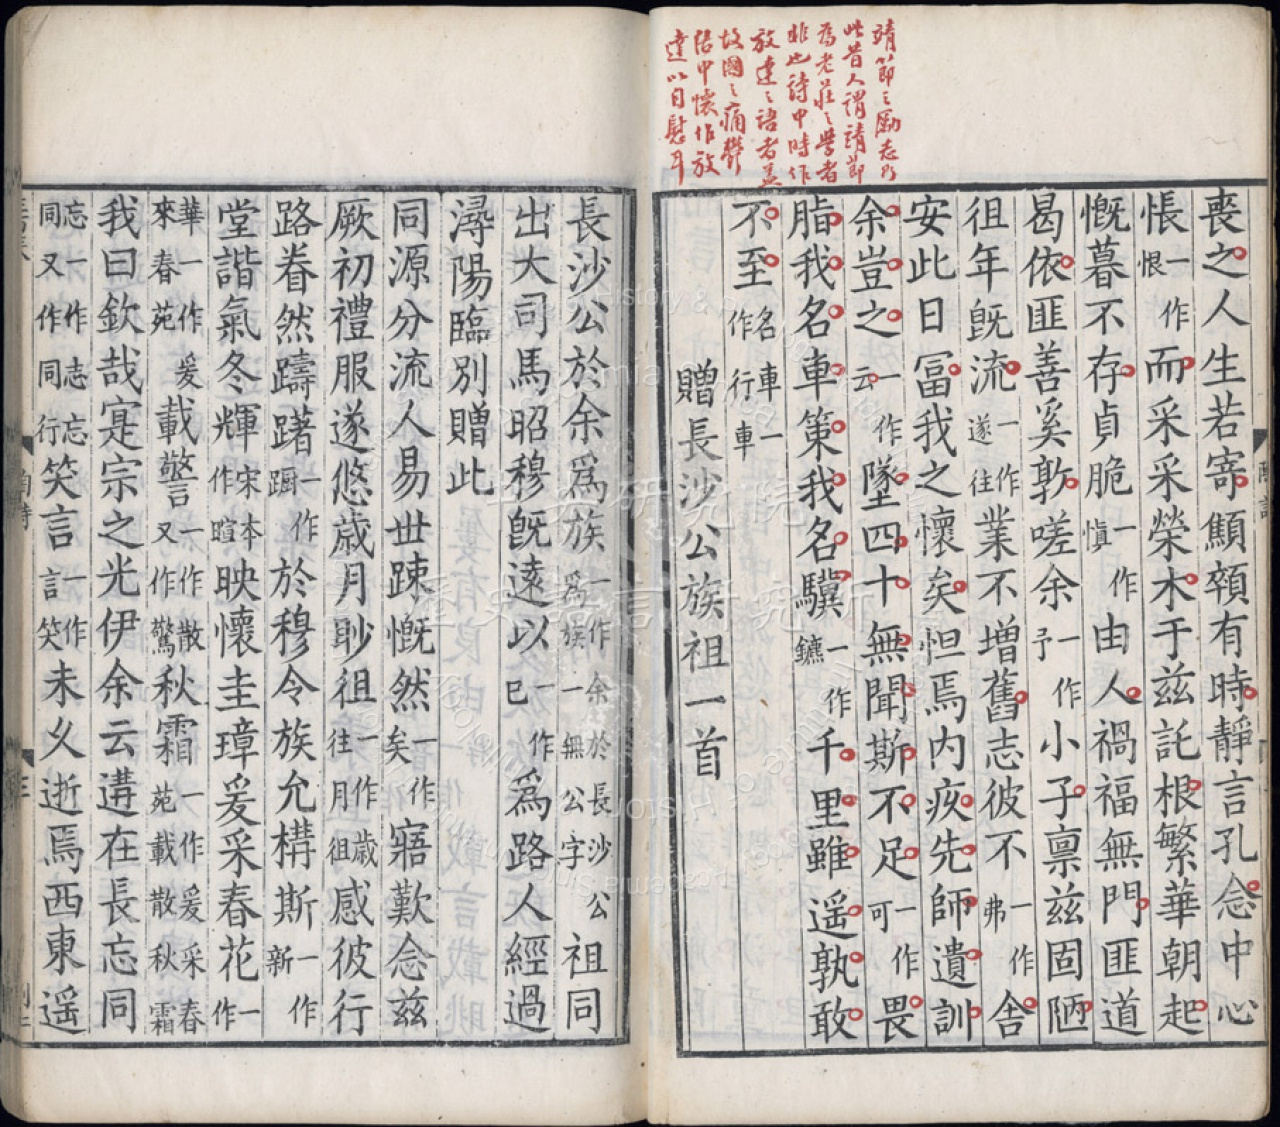 靖節之勵志所
此昔人謂靖節
為老莊之學者
非也詩中時作
放達之語者蓋
故國之痛鬱
結中懷作放
達以自慰耳
喪之人生若寄顦顇有時靜言孔念中心
悵一作恨而采采榮木于茲託根繁華朝起
慨暮不存貞脆一作愼由人禍福無門匪道
曷依匪善奚敦嗟余一作予小子禀茲固陋
徂年旣流一作遂往業不增舊志彼不一作弗舍
安此日富我之懷矣怛焉内疚先師遺訓
余豈之一作云墜四十無聞斯不足一作可畏
脂我名車策我名驥一作鑣千里雖遥孰敢
不至名車一作行車
贈長沙公族祖一首
長沙公於余爲族一作余於長沙公爲族一無公字祖同
出大司馬昭穆旣逺以一作已爲路人經過
潯陽臨別贈此
同源分流人易丗踈慨然一作矣寤歎念茲
厥初禮服遂悠歲月眇徂一作歲往月徂感彼行
路眷然躊躇一作蹰於穆令族允構斯一作新
堂諧氣冬輝宋本作暄映懷圭璋爰采春花一作
華一作爰來春苑載警一作散又作驚秋霜一作爰采春苑載散秋霜
我曰欽哉寔宗之光伊余云遘在長忘同
忘一作志忘同又作同行笑言一作言笑未久逝焉西東遥
陶詩
三